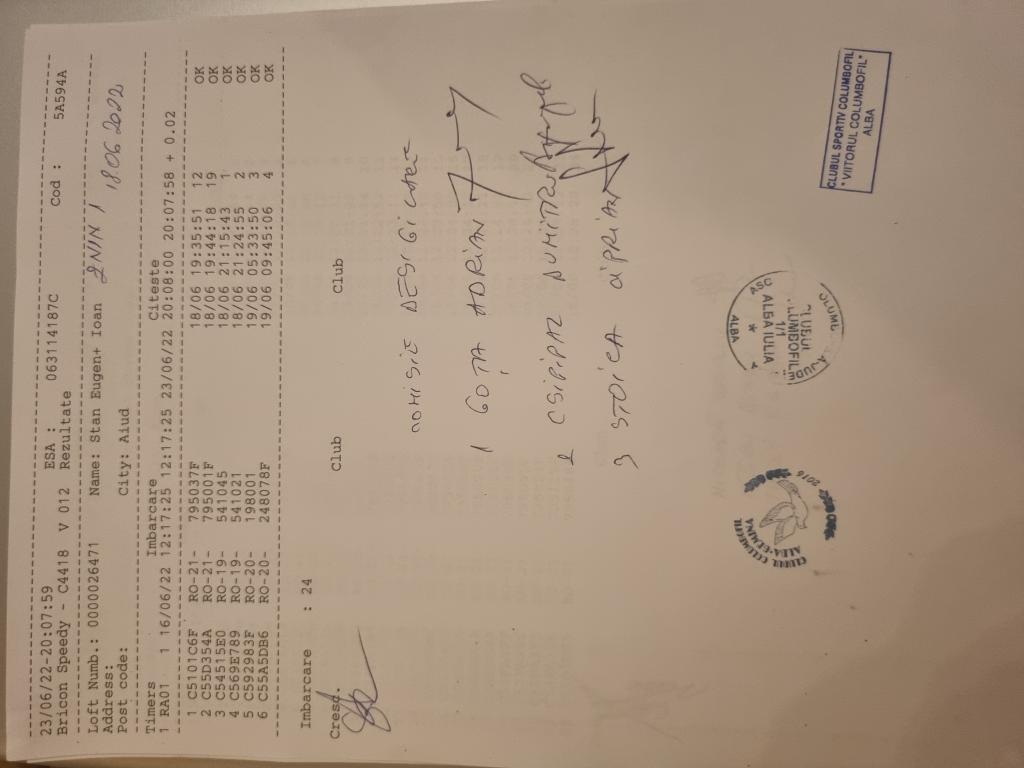 23/06/22-20:07:59
Bricon Speedy - C4418 V 012 ESA : 063114187C Cod : 5A594A
Rezultate
Loft Numb.: 0000026471 Name: Stan Eugen+ Ioan 18.06.2022
Address:
Post code: City: Aiud
Timers Imbarcare Citeste
1 RA01 1 16/06/22 12:17:25 12:17:25 23/06/22 20:08:00 20:07:58 + 0.02
1 C5101C6F RO-21- 795037F 18/06 19:35:51 12 OK
2 C55D354A RO-21- 795001F 18/06 19:44:18 19 OK
3 C54515E0 RO-19- 541045 18/06 21:15:43 1 OK
4 C569E789 RO-19- 541021 18/06 21:24:55 2 OK
5 C592983F RO-20- 198001 19/06 05:33:50 3 OK
6 C55A5DB6 RO-20- 248078F 19/06 09:45:06 4 OK
Imbarcare : 24
Cresc. Club Club
1 GOȚA ADRIAN
2 DUMITRU
3 STOICA CIPRIAN
CLUBUL COLUMBOFIL
ALBA-GEMINA
2016
ALBA
ASC
CLUBUL
COLUMBOFIL
111
ALBA IULIA
CLUBUL SPORTIV COLUMBOFIL
"VIITORUL COLUMBOFIL"
ALBA